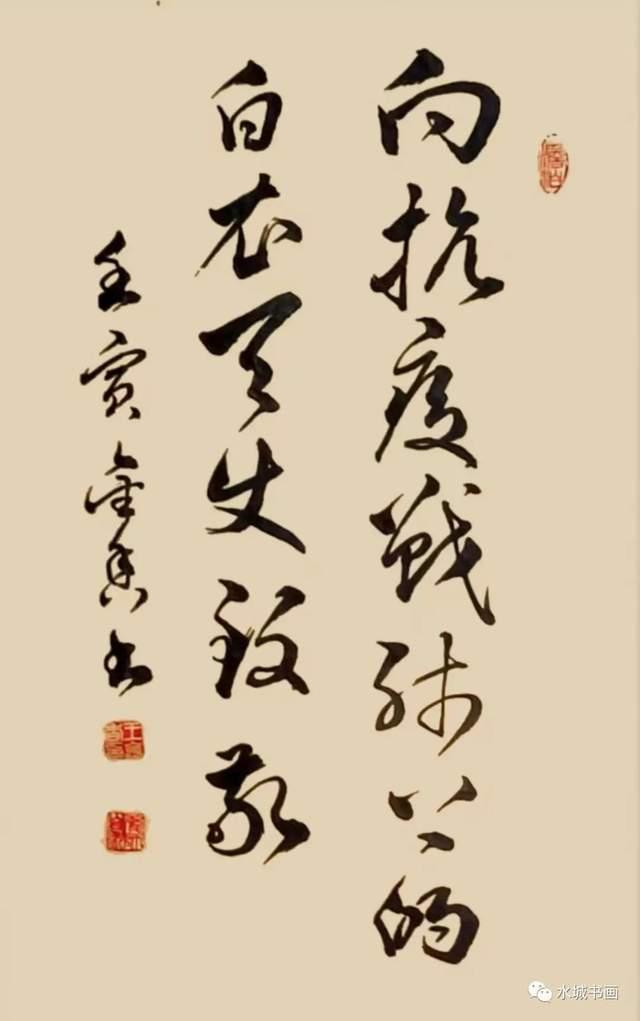 向抗疫戰线上的
白衣天使致敬
壬寅金书
水城书画